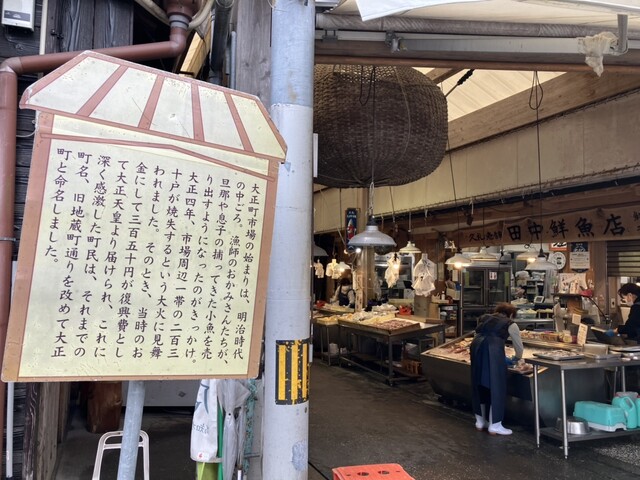 大正町市場の始まりは、明治時代
の中ごろ。漁師のおかみさんたちが、
旦那や息子の捕ってきた小魚を売
り出すようになったのがきっかけ。
大正四年、市場周辺一帯の二百三
十戸が焼失するという大火に見舞
われました。そのとき、当時のお
金にして三百五十円が復興費とし
て大正天皇より届けられ、これに
深く感激した町民は、それまでの
町名、旧地蔵町通りを改めて大正
町と命名しました。
田中鮮魚店